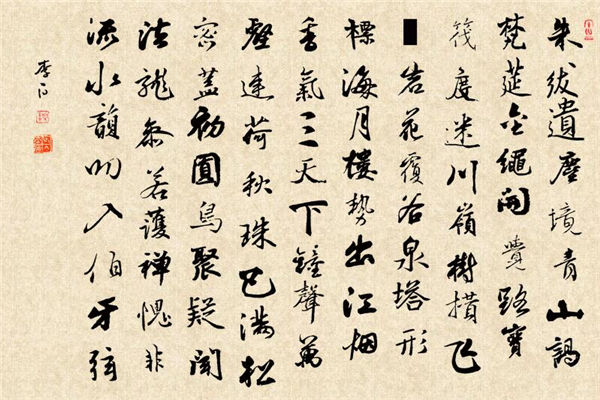 朱紱遺塵境青山謁
梵筵金繩開覺路寶
筏度迷川嶺樹攢飞
岩花覆谷泉塔形
標海月樓勢出江烟
香氣三天下鐘聲萬
壑連荷秋珠已滿松
密蓋初圓鳥聚疑聞
法龍參若護禪愧非
流水韻叨入伯牙弦
李白